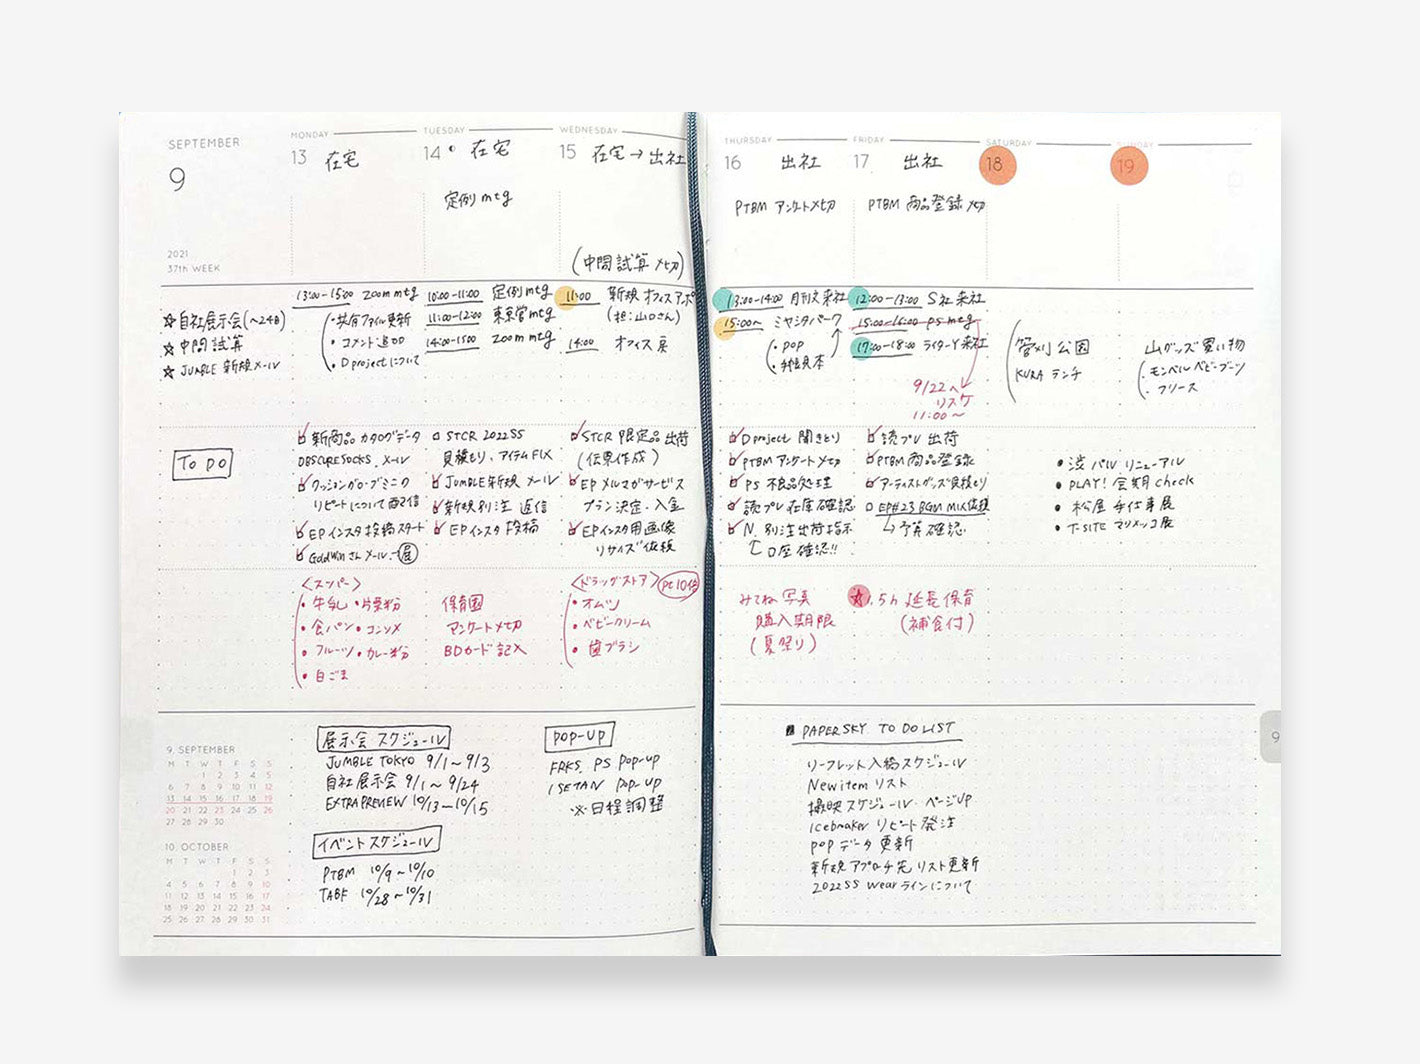 SEPTEMBER
9
2021
37th WEEK
MONDAY
13 在宅
TUESDAY
14 在宅
定例mtg
WEDNESDAY
15 在宅→出社
(中間試算〆切)
THURSDAY
16 出社
PTBM アンケート〆切
FRIDAY
17 出社
PTBM 商品登録〆切
SATURDAY
18
SUNDAY
19
☆自社展示会(~24日)
☆中間試算
☆JUMBLE 新規メール
13:00-15:00 zoom mtg
・共有ファイル更新
・コメント追加
・D projectについて
10:00-11:00 定例mtg
11:00-12:00 東京営mtg
14:00-1500 zoom mtg
11:00 新規オフィスアポ
(担:山口さん)
14:00 オフィス戻
13:00-14:00 月刊文来社
15:00~ ミヤシタパーク
・POP
・手性見本
12:00-13:00 S社来社
15:00-16:00 PS mtg
17:00-18:00 ライターY来社
9/22へ
リスケ
11:00~
菅刈公園
KURA ランチ
山グッズ買い物
・モンベル ベビーブーツ
・フリース
TO DO
新商品カタログデータ
OBSCURE SOCKS. メール
クッショングローブミニク
リピートについて配信
EPインスタ投稿スタート
GoldWinさんメール→展
STCR 2022SS
見積もり、アイテムFIX
JUMBLE新規メール
新規別注 返信
EPインスタ投稿
STCR 限定品出荷
(伝票作成)
EP メルマガサービス
プラン決定・入金
EPインスタ用画像
リサイズ依頼
D project 聞きとり
PTBM アンケート〆切
PS 不良品処理
読プレ在庫確認
N. 別注出荷指示
口座確認!!
読プレ出荷
PTBM商品登録
アーティストグッズ見積もり
EP#23 BGM MIX依頼
↳予算確認
・渋パル リニューアル
・PLAY! 会期check
・松屋 手仕事展
・T-SITE マリメッコ展
<スーパー>
・牛乳 ・片栗粉
・食パン ・コンソメ
・フルーツ ・カレー粉
・白ごま
保育園
アンケート〆切
BDカード記入
<ドラッグストア> Pt 10倍
・オムツ
・ベビークリーム
・歯ブラシ
みてね写真
購入期限
(夏祭り)
☆1.5h 延長保育
(補食付)
9. SEPTEMBER
M T W T F S S
1 2 3 4 5
6 7 8 9 10 11 12
13 14 15 16 17 18 19
20 21 22 23 24 25 26
27 28 29 30
10. OCTOBER
M T W T F S S
1 2 3
4 5 6 7 8 9 10
11 12 13 14 15 16 17
18 19 20 21 22 23 24
25 26 27 28 29 30 31
展示会スケジュール
JUMBLE TOKYO 9/1~9/3
自社展示会 9/1~9/24
EXTRA PREVIEW 10/13~10/15
イベントスケジュール
PTBM 10/9~10/10
TABF 10/28~10/31
POP-UP
FRKS. PS POP-UP
ISETAN POP-UP
※日程調整
PAPERSKY TO DO LIST
リーフレット入稿スケジュール
New itemリスト
撮映スケジュール・ページUP
Icebreaker リピート発注
POPデータ更新
新規アプローチ先リスト更新
2022SS wearラインについて
9